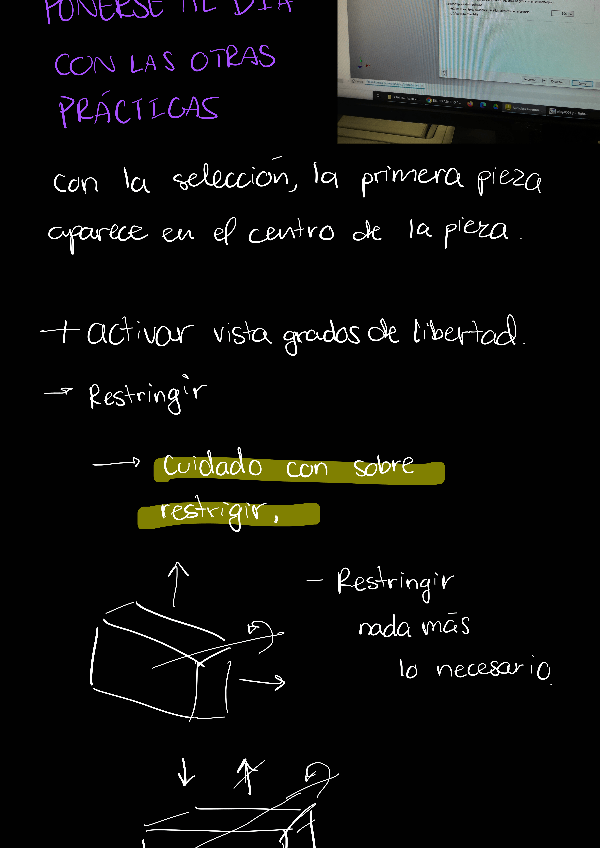 PONERSE AL DÍA
CON LAS OTRAS
PRÁCTICAS
con la selección, la primera pieza
aparece en el centro de la pieza.
+ activar vista grados de libertad.
→ Restringir
→ cuidado con sobre
restrigir,
- Restringir
nada más
lo necesario.